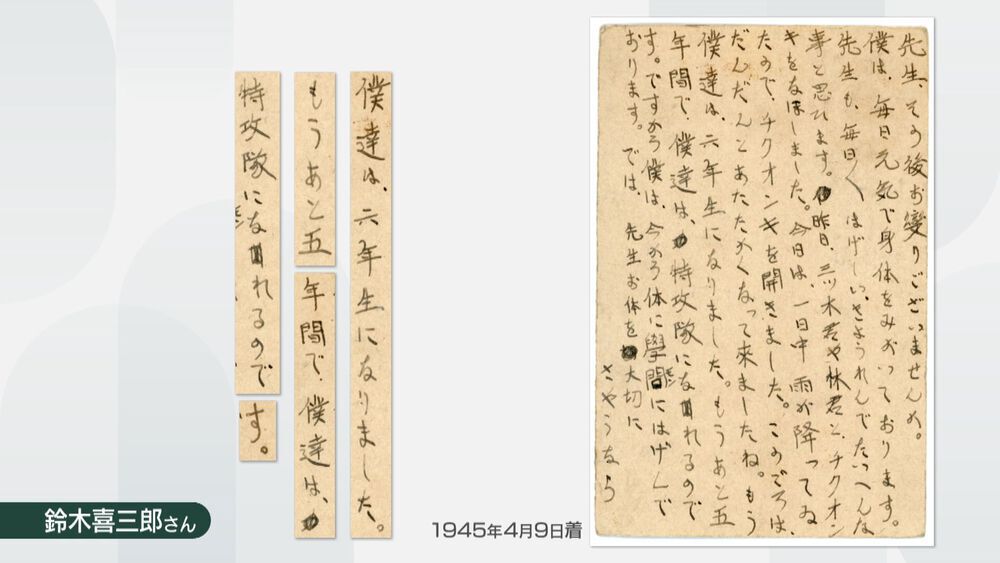 僕達は、六年生になりました。
もうあと五
年間で、僕達は、
特攻隊になれるので
す。
鈴木喜三郎さん
1945年4月9日着
先生、その後お変りございませんか。
僕は、毎日元気で身体をみがいております。
先生も、毎日〱はげしいきようれんでたいへんな
事と思ひます。昨日、三ツ木君や林君と、チクオン
キをなほしました。今日は、一日中雨が降ってゐ
たので、チクオンキを開きました。このごろは、
だんだんとあたたかくなって来ましたね。もう
僕達は、六年生になりました。もうあと五
年間で、僕達は、特攻隊になれるので
す。ですから僕は、今から体に學問にはげんで
おります。では、先生お体を大切に
さやうなら